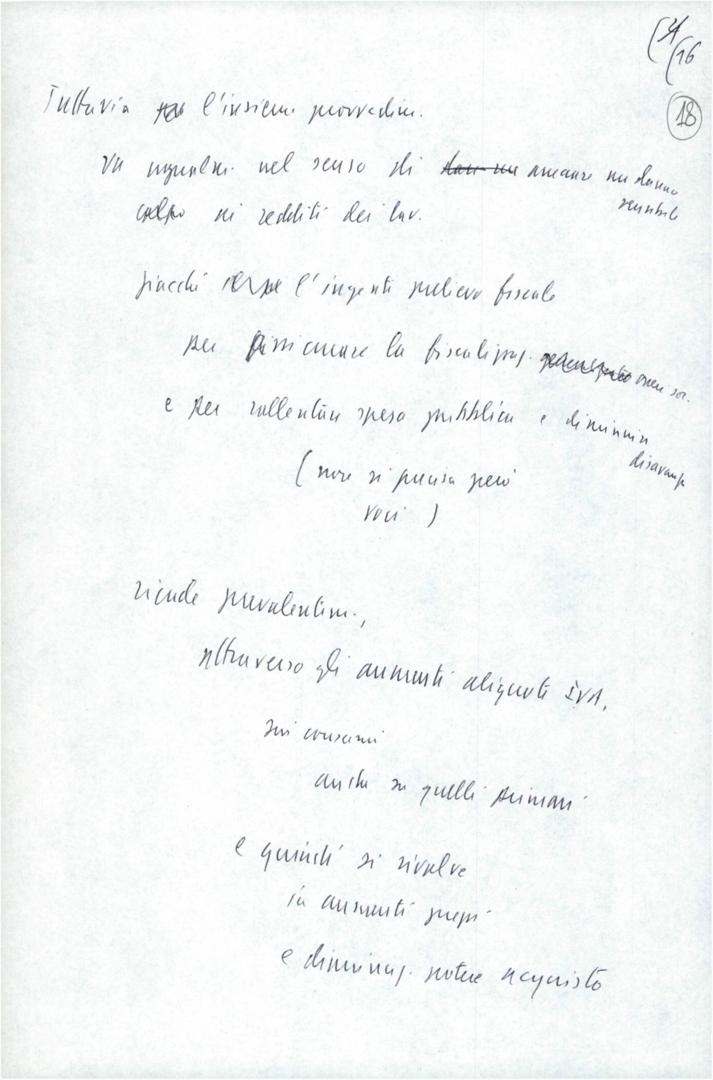 16
18
Tuttavia l'insieme provvedim.
va ugualm. nel senso di arrecare un danno
sensibile
colpo ai redditi dei lav.
giacchè l'ingente prelievo fiscale
per la fiscalizzaz. oneri soc.
e per rallentare spesa pubblica e diminuire
disavanzo
(non si precisa però
voci)
ricade prevalentem.,
attraverso gli aumenti aliquote IVA,
sui consumi
anche su quelli primari
e quindi si risolve
in aumenti prezzi
e diminuz. potere acquisto